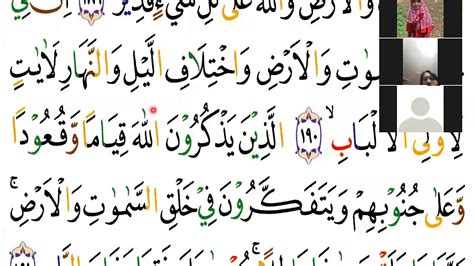 وَالْاَرْضِ وَاللّٰهُ عَلٰى كُلِّ شَيْءٍ قَدِيْرٌ
مٰوٰتِ وَالْاَرْضِ وَاخْتِلَافِ الَّيْلِ وَالنَّهَارِ لَاٰيٰتٍ
لِّاُولِى الْاَلْبَابِ ۙ ﴿١٩٠﴾ الَّذِيْنَ يَذْكُرُوْنَ اللّٰهَ قِيَامًا وَّقُعُوْدًا
وَّعَلٰى جُنُوْبِهِمْ وَيَتَفَكَّرُوْنَ فِيْ خَلْقِ السَّمٰوٰتِ وَالْاَرْضِ ۚ